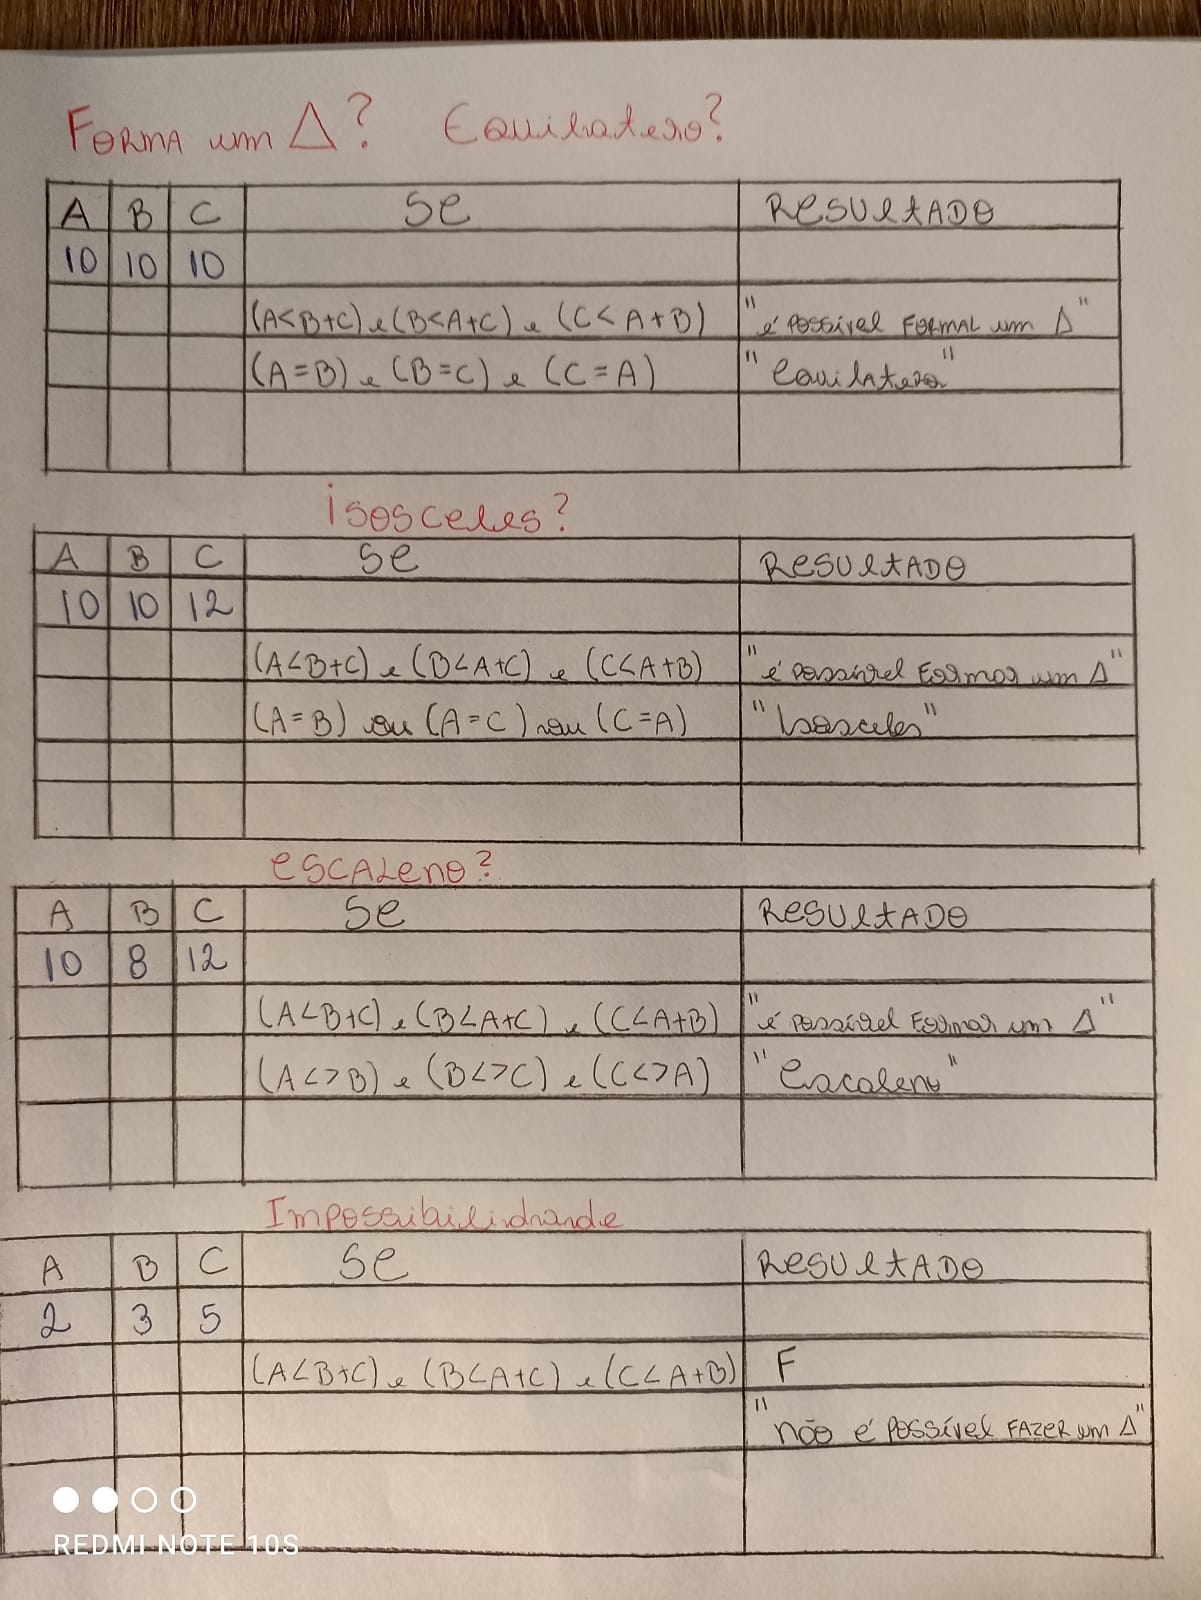 FORMA um Δ? Equilatero?
A B C Se ResultADO
10 10 10
(A<B+C) e (B<A+C) e (C<A+B) "é possível FORMAL um Δ"
(A=B) e (B=C) e (C=A) "Equilatero"
isosceles?
A B C Se ResultADO
10 10 12
(A<B+C) e (B<A+C) e (C<A+B) "é possível Formar um Δ"
(A=B) ou (A=C) ou (C=A) "Isosceles"
escaleno?
A B C Se ResultADO
10 8 12
(A<B+C) e (B<A+C) e (C<A+B) "é possível Formar um Δ"
(A<>B) e (B<>C) e (C<>A) "Escaleno"
Impossibilidade
A B C Se ResultADO
2 3 5
(A<B+C) e (B<A+C) e (C<A+B) F
"não é possível FAZER um Δ"
REDMI NOTE 10S